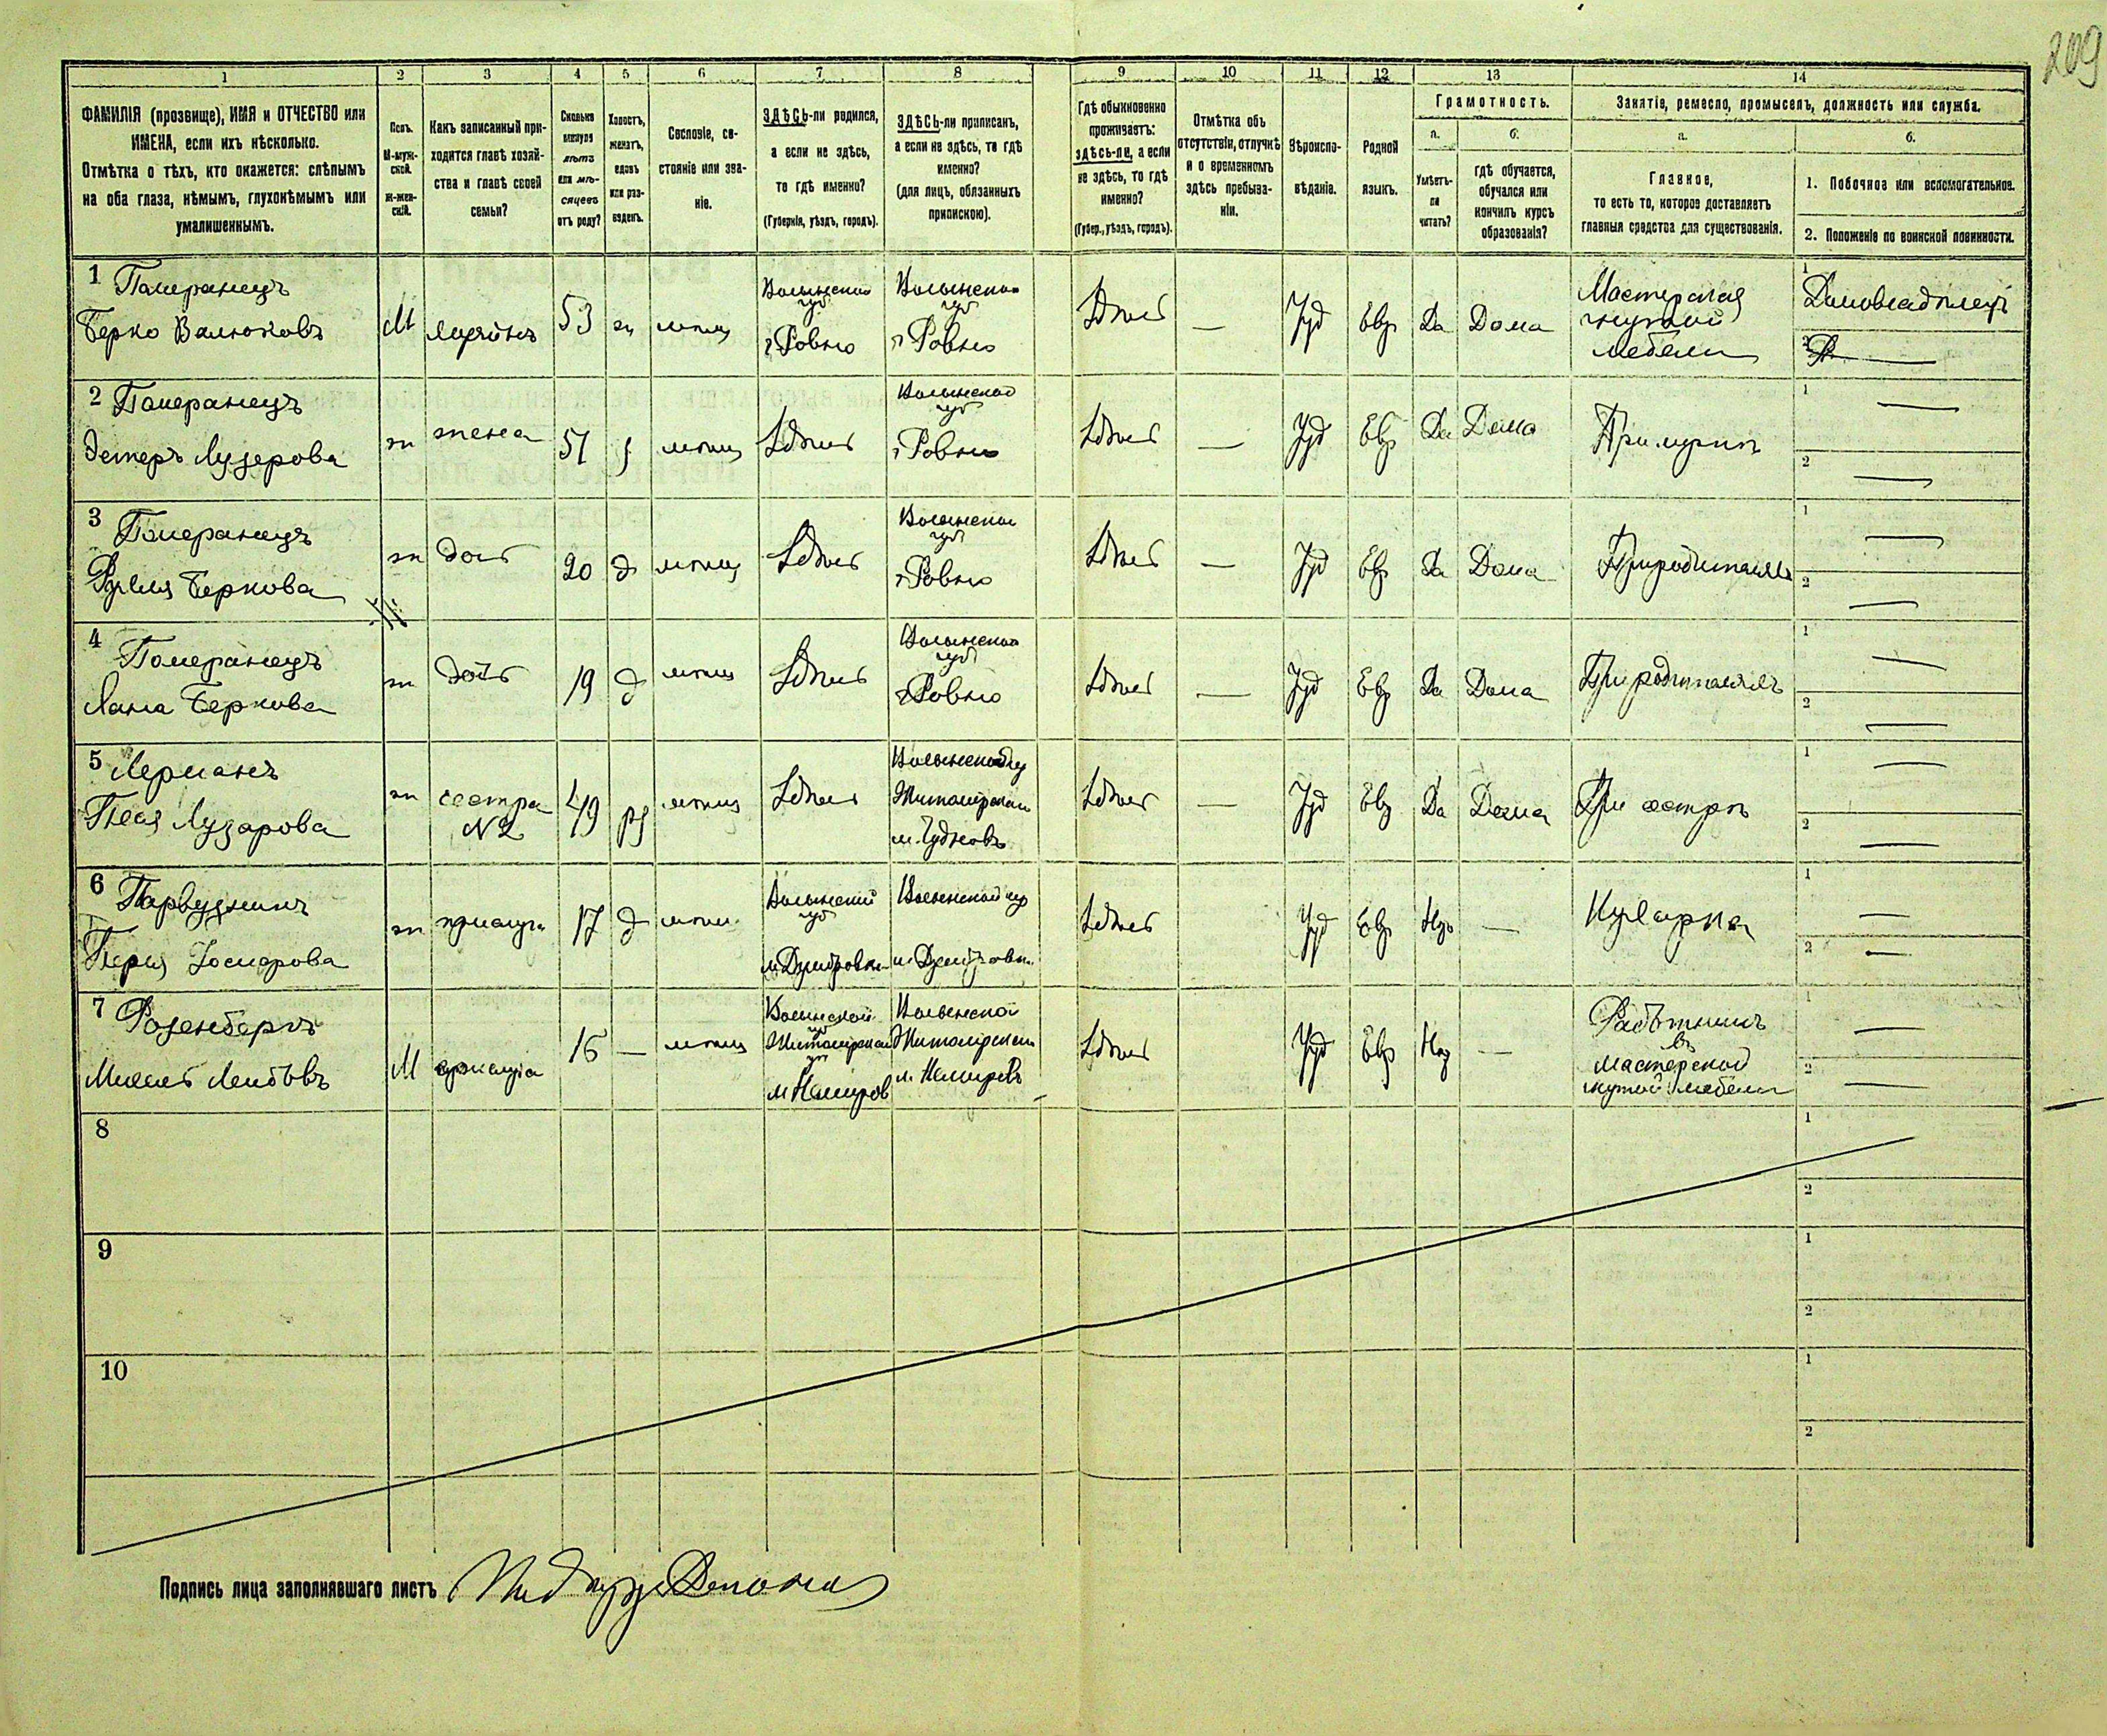 209
1 2 3 4 5 6 7 8 9 10 11 12 13 14
ФАМИЛІЯ (прозвище), ИМЯ и ОТЧЕСТВО или
ИМЕНА, если ихъ нѣсколько.
Отмѣтка о тѣхъ, кто окажется: слѣпымъ
на оба глаза, нѣмымъ, глухонѣмымъ или
умалишеннымъ.
Полъ.
М-муж-
ской.
ж-жен-
скій.
Какъ записанный при-
ходится главѣ хозяй-
ства и главѣ своей
семьи?
Сколько
минуло
лѣтъ
или мѣ-
сяцевъ
отъ роду?
Холостъ,
женатъ,
вдовъ
или раз-
веденъ.
Сословіе, со-
стояніе или зва-
ніе.
ЗДѢСЬ-ли родился,
а если не здѣсь,
то гдѣ именно?
(Губернія, уѣздъ, городъ).
ЗДѢСЬ-ли приписанъ,
а если не здѣсь, то гдѣ
именно?
(для лицъ, обязанныхъ
припискою).
Гдѣ обыкновенно
проживаетъ:
здѣсь-ли, а если
не здѣсь, то гдѣ
именно?
(Губер., уѣздъ, городъ).
Отмѣтка объ
отсутствіи, отлучкѣ
и о временномъ
здѣсь пребыва-
ніи.
Вѣроиспо-
вѣданіе.
Родной
языкъ.
Грамотность.
а.
Умѣетъ-
ли
читать?
б.
гдѣ обучается,
обучался или
кончилъ курсъ
образованія?
Занятіе, ремесло, промыселъ, должность или служба.
а.
Главное,
то есть то, которое доставляетъ
главныя средства для существованія.
б.
1. Побочное или вспомогательное.
2. Положеніе по воинской повинности.
1 Померанецъ
Берко Валюковъ
М
53
мѣщ
Волынской
губ
г Ровно
Волынской
губ
г Ровно
Здѣсь
—
Іуд
Евр
Да
Дома
Мастерская
гнутой
мебели
1 Домовладѣлецъ
2
2 Померанецъ
Эстеръ Лузерова
ж
жена
51
мѣщ
Здѣсь
Волынской
губ
г Ровно
Здѣсь
—
Іуд
Евр
Да
Дома
При мужѣ
1 —
2 —
3 Померанецъ
Рухля Беркова
ж
дочь
20
д
мѣщ
Здѣсь
Волынской
губ
г Ровно
Здѣсь
—
Іуд
Евр
Да
Дома
При родителяхъ
1 —
2 —
4 Померанецъ
Хана Беркова
ж
дочь
19
д
мѣщ
Здѣсь
Волынской
губ
г Ровно
Здѣсь
—
Іуд
Евр
Да
Дома
При родителяхъ
1 —
2 —
5 Лерманъ
Песя Лузарова
ж
сестра
№ 2
49
мѣщ
Здѣсь
Волынской гу
Житомірской
м. Чудновъ
Здѣсь
—
Іуд
Евр
Да
Дома
При сестрѣ
1 —
2 —
6
ж
прислуга
17
д
мѣщ
Волынской
губ
Волынской гу
Здѣсь
Іуд
Евр
Нѣт
—
Кухарка
1 —
2 —
7 Розенбергъ
Лейбовъ
М
прислуга
16
—
мѣщ
Волынской
губ
Житомірской
м
Волынской
Житомірской
м.
Здѣсь
Іуд
Евр
Нѣт
—
Работникъ
въ
мастерской
гнутой мебели
1 —
2 —
8
1
2
9
1
2
10
1
2
Подпись лица заполнявшаго листъ